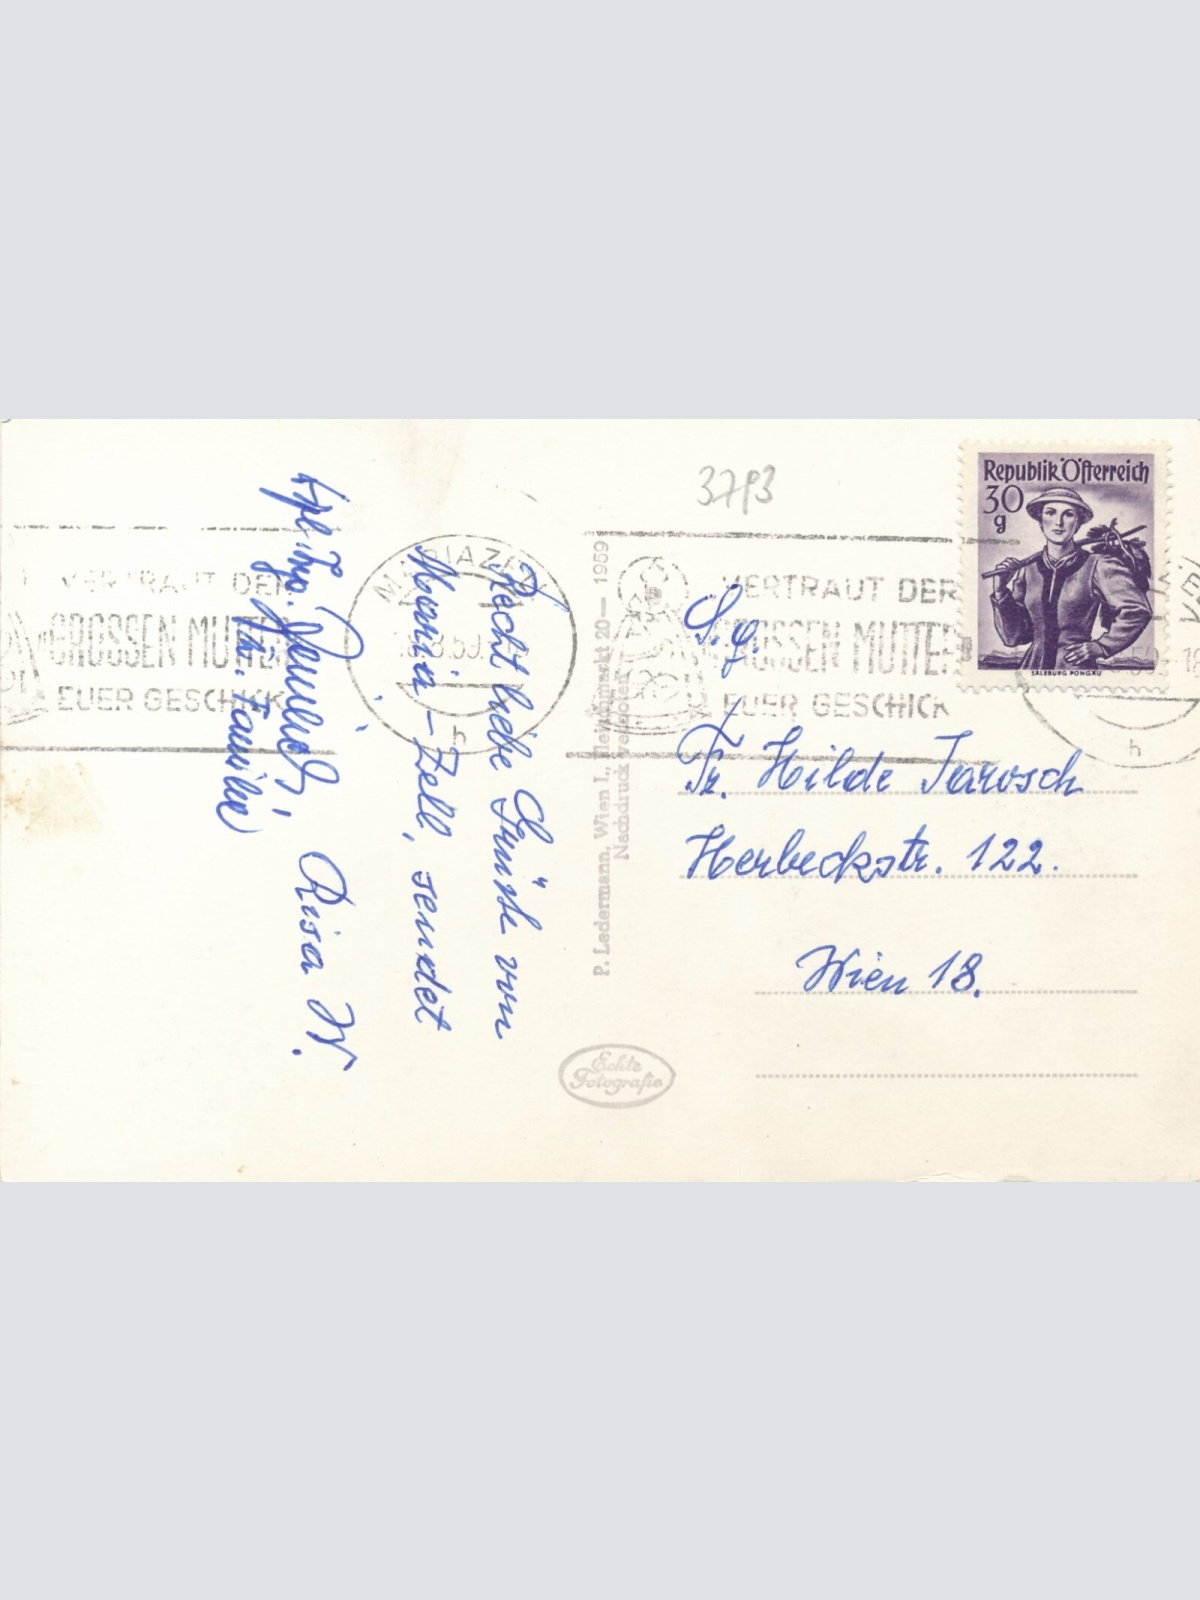 3793
Republik Österreich
30
g
SALZBURG PONGAU
VERTRAUT DER
GROSSEN MUTTER
EUER GESCHICK
MARIAZELL
8.59
h
VERTRAUT DER
GROSSEN MUTTER
EUER GESCHICK
59-18
h
S. g.
Fr. Hilde Jarosch
Herbeckstr. 122.
Wien 18.
Recht liebe Grüße von
Maria-Zell, sendet
Risa W.
Familie
P. Ledermann, Wien I., Fleischmarkt 20 — 1959
Nachdruck verboten
Echte
Fotografie